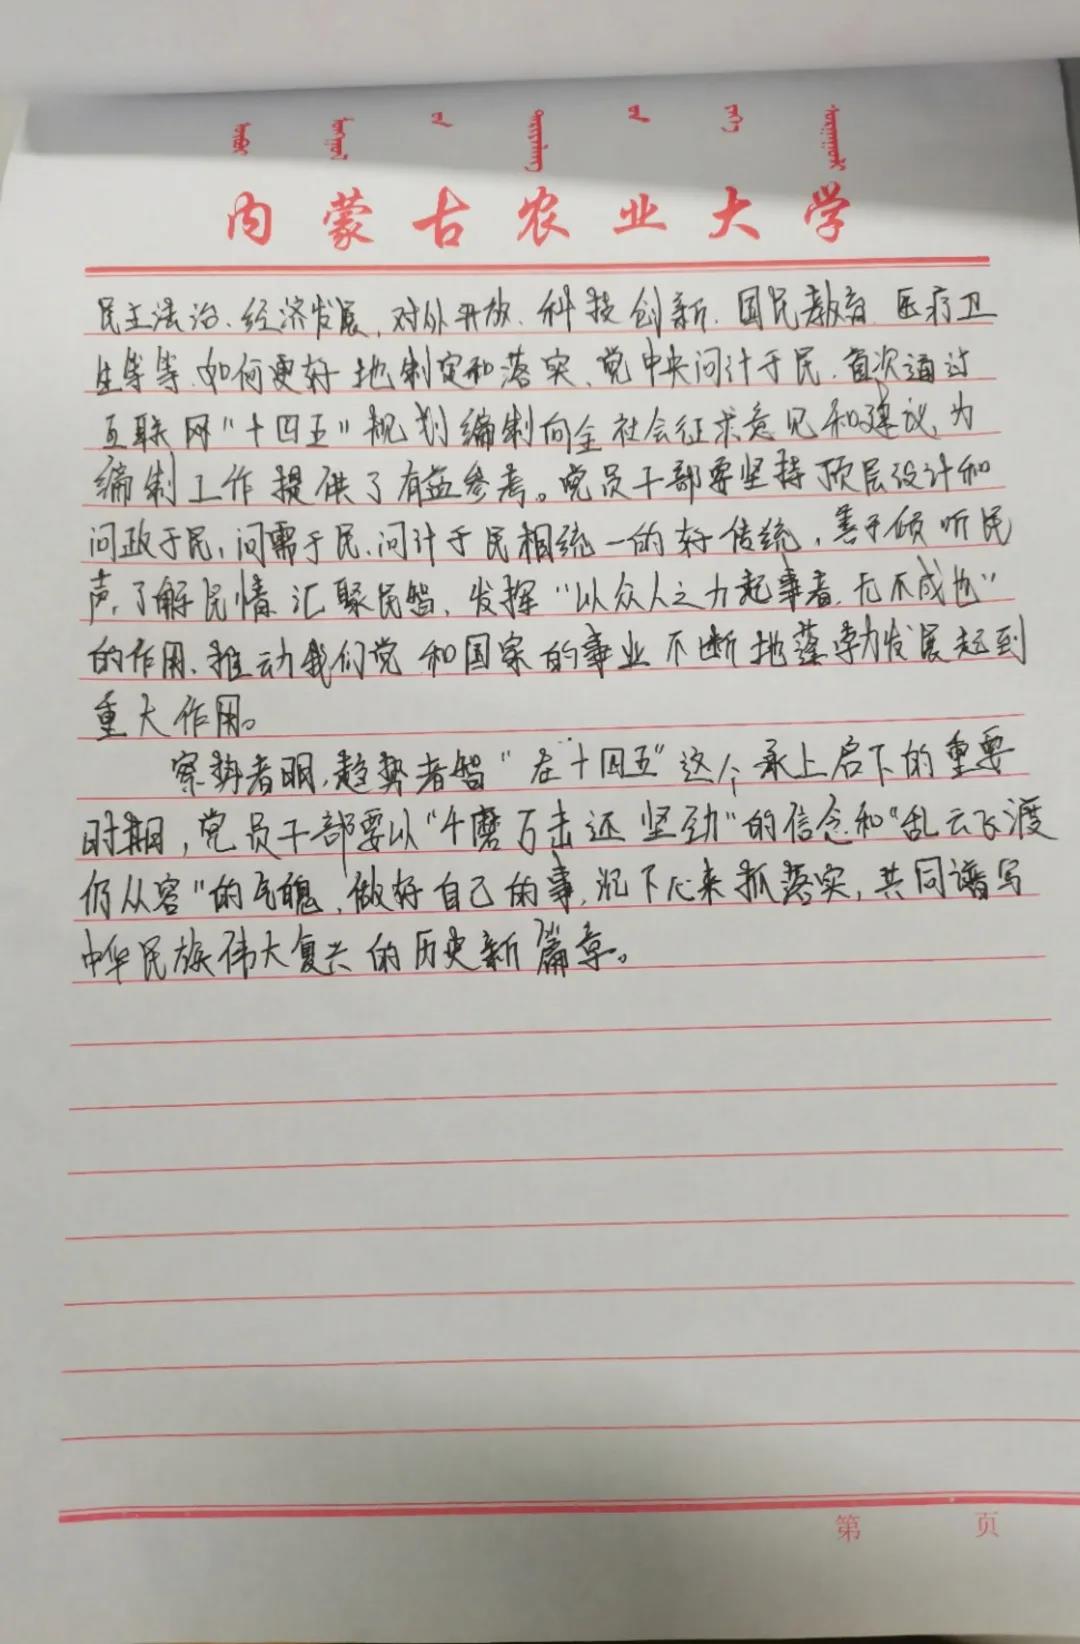 内蒙古农业大学
民主法治、经济发展、对外开放、科技创新、国民教育、医疗卫
生等等、如何更好地制定和落实、党中央问计于民、首次通过
互联网“十四五”规划编制向全社会征求意见和建议,为
编制工作提供了有益参考。党员干部要坚持顶层设计和
问政于民,问需于民、问计于民相统一的好传统,善于倾听民
声,了解民情 汇聚民智,发挥“以众人之力起事者,无不成也”
的作用、推动我们党和国家的事业不断地蓬勃发展起到
重大作用。
察势者明,趋势者智“在十四五”这个承上启下的重要
时期,党员干部要以“千磨万击还坚劲”的信念和“乱云飞渡
仍从容”的气魄,做好自己的事,沉下心来抓落实,共同谱写
中华民族伟大复兴的历史新篇章。
第 页